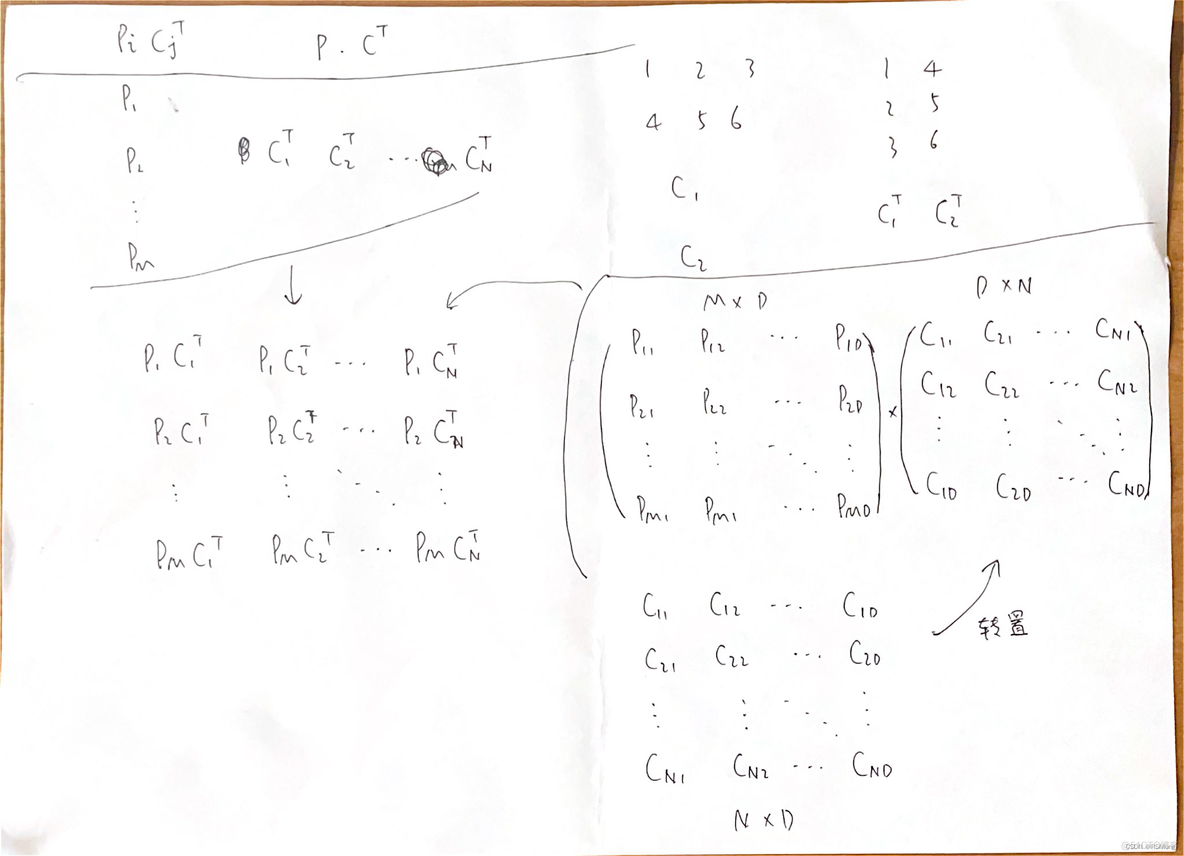 Pi Cjᵀ P · Cᵀ
P₁
P₂ C₁ᵀ C₂ᵀ ··· C_Nᵀ
⋮
P_M
P₁C₁ᵀ P₁C₂ᵀ ··· P₁C_Nᵀ
P₂C₁ᵀ P₂C₂ᵀ ··· P₂C_Nᵀ
⋮ ⋮ ⋱ ⋮
P_MC₁ᵀ P_MC₂ᵀ ··· P_MC_Nᵀ
1 2 3
4 5 6
C₁
C₂
1 4
2 5
3 6
C₁ᵀ C₂ᵀ
M × D D × N
P₁₁ P₁₂ ··· P₁D C₁₁ C₂₁ ··· C_N1
P₂₁ P₂₂ ··· P₂D × C₁₂ C₂₂ ··· C_N2
⋮ ⋮ ⋱ ⋮ ⋮ ⋮ ⋱ ⋮
P_M1 P_M1 ··· P_MD C₁D C₂D ··· C_ND
转置
C₁₁ C₁₂ ··· C₁D
C₂₁ C₂₂ ··· C₂D
⋮ ⋮ ⋱ ⋮
C_N1 C_N2 ··· C_ND
N × D